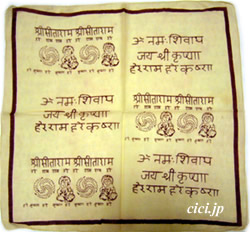 श्रीसीताराम श्रीसीताराम
ॐ नमः शिवाय
जय श्री कृष्णा
हरे राम हरे कृष्णा
ॐ नमः शिवाय
जय श्री कृष्णा
हरे राम हरे कृष्णा
श्रीसीताराम श्रीसीताराम
श्रीसीताराम श्रीसीताराम
ॐ नमः शिवाय
जय श्री कृष्णा
हरे राम हरे कृष्णा
cici.jp